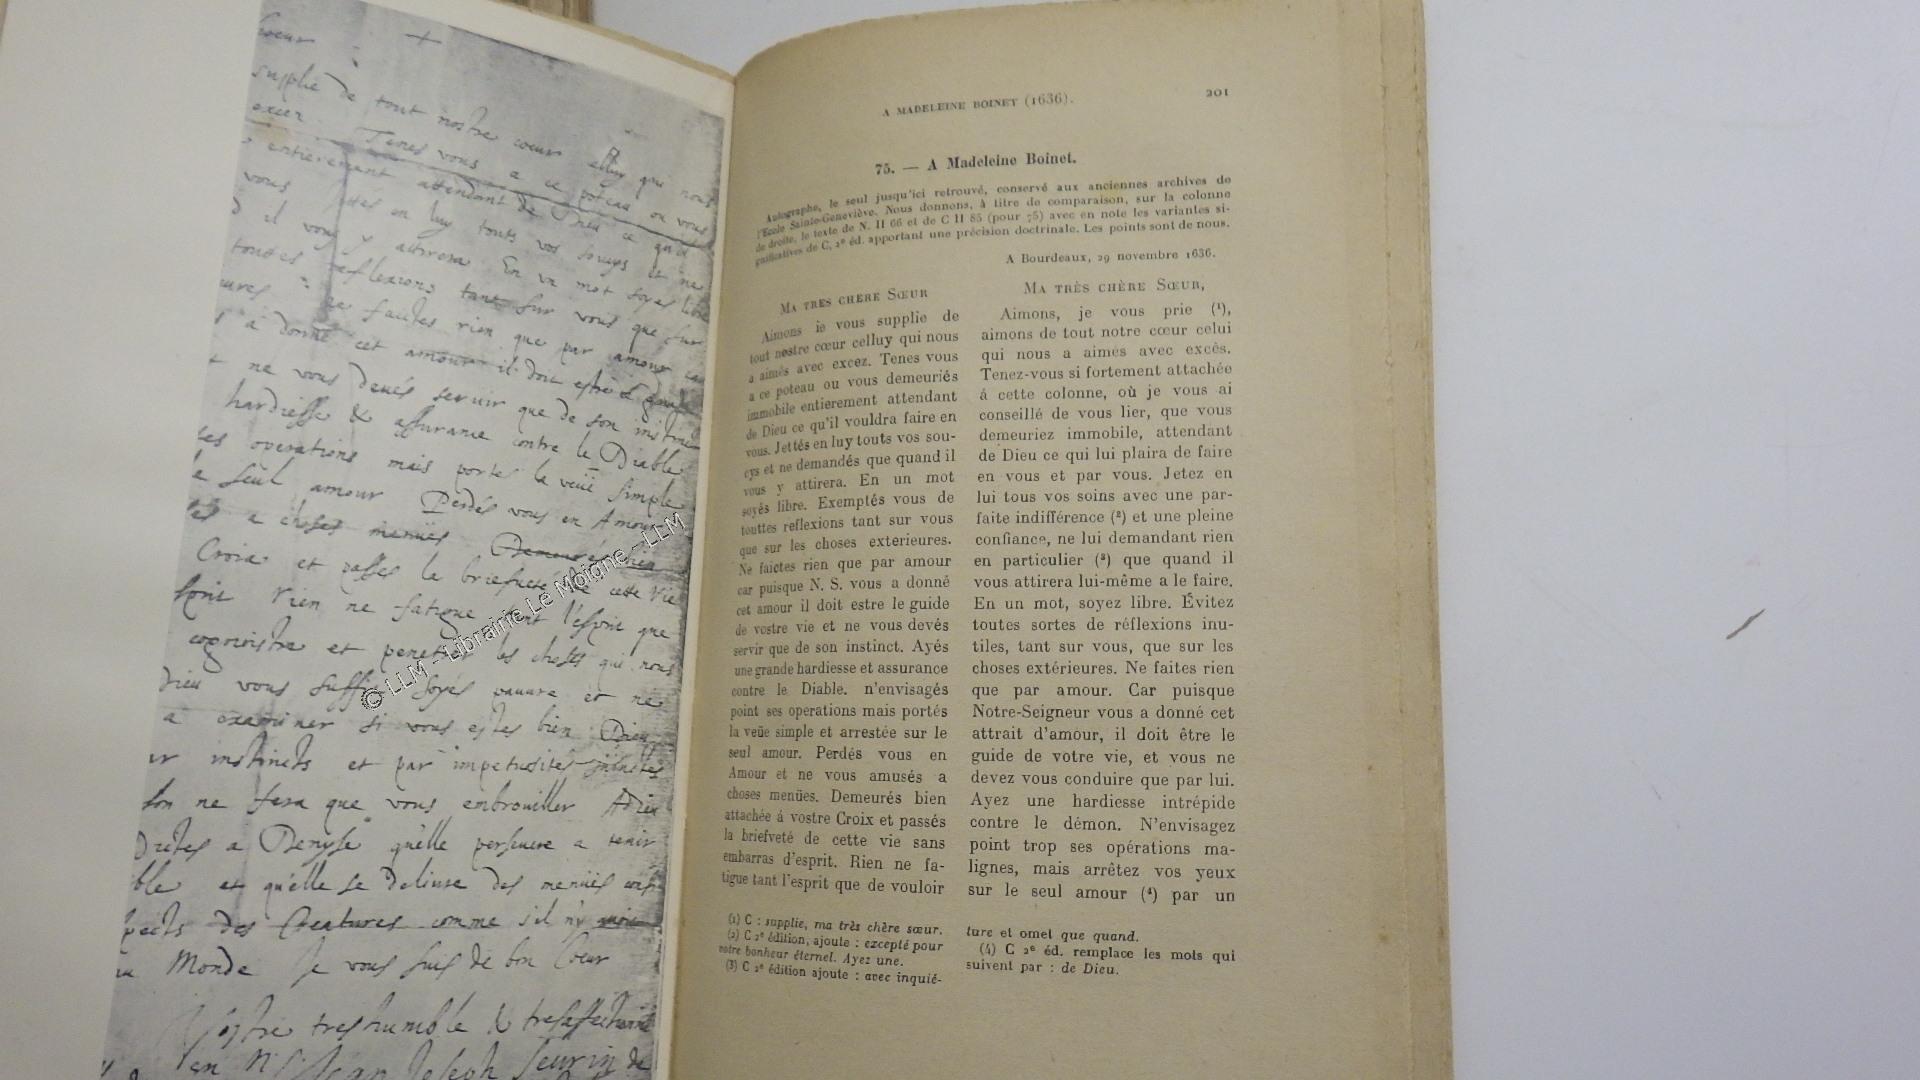 sœur +
supplie de tout nostre cœur elluy qui nous
excez. Tenes vous a ce poteau ou vous
entierement attendant de Dieu ce qu'il
vous Jettés en luy touts vos soucys et ne
il vous y attirera En un mot soyes libre
toutes reflexions tant sur vous que sur
eures ne faictes rien que par amour car
a donné cet amour il doit estre le guide
ne vous devés servir que de son instinct
hardiesse & assurance contre le Diable
ses operations mais portes la veüe simple
le seul amour Perdés vous en Amour
és a choses menues Demeurés bien
Croix et passes la briefveté de cette vie
Rien ne fatigue tant l'esprit que
cognoistre et penetrer les choses qui nous
Dieu vous suffit soyés pauvre et ne
a examiner si vous estes bien Dieu
instincts et par impetuosités
son ne fera que vous embrouiller Adieu
Dictes a Denyse qu'elle persevere a tenir
ble et qu'elle se delivre des menues
pects des Creatures comme s'il n'y
Monde Je vous suis de bon Cœur
Vostre treshumble & tresaffectionné
en N. S. Jean Joseph Seurin de
© LLM - Librairie Le Moigne - LLM
A MADELEINE BOINET (1636). 201
75. — A Madeleine Boinet.
Autographe, le seul jusqu'ici retrouvé, conservé aux anciennes archives de
l'Ecole Sainte-Geneviève. Nous donnons, à titre de comparaison, sur la colonne
de droite, le texte de N. II 66 et de C II 85 (pour 75) avec en note les variantes si-
gnificatives de C, 2e éd. apportant une précision doctrinale. Les points sont de nous.
A Bourdeaux, 29 novembre 1636.
MA TRES CHERE SŒUR
Aimons ie vous supplie de
tout nostre cœur celluy qui nous
a aimés avec excez. Tenes vous
a ce poteau ou vous demeuriés
immobile entierement attendant
de Dieu ce qu'il vouldra faire en
vous. Jettés en luy touts vos sou-
cys et ne demandés que quand il
vous y attirera. En un mot
soyés libre. Exemptés vous de
touttes reflexions tant sur vous
que sur les choses exterieures.
Ne faictes rien que par amour
car puisque N. S. vous a donné
cet amour il doit estre le guide
de vostre vie et ne vous devés
servir que de son instinct. Ayés
une grande hardiesse et assurance
contre le Diable. n'envisagés
point ses operations mais portés
la veüe simple et arrestée sur le
seul amour. Perdés vous en
Amour et ne vous amusés a
choses menües. Demeurés bien
attachée á vostre Croix et passés
la briefveté de cette vie sans
embarras d'esprit. Rien ne fa-
tigue tant l'esprit que de vouloir
MA TRÈS CHÈRE SŒUR,
Aimons, je vous prie (1),
aimons de tout notre cœur celui
qui nous a aimés avec excès.
Tenez-vous si fortement attachée
á cette colonne, où je vous ai
conseillé de vous lier, que vous
demeuriez immobile, attendant
de Dieu ce qui lui plaira de faire
en vous et par vous. Jetez en
lui tous vos soins avec une par-
faite indifférence (2) et une pleine
confiance, ne lui demandant rien
en particulier (3) que quand il
vous attirera lui-même a le faire.
En un mot, soyez libre. Évitez
toutes sortes de réflexions inu-
tiles, tant sur vous, que sur les
choses extérieures. Ne faites rien
que par amour. Car puisque
Notre-Seigneur vous a donné cet
attrait d'amour, il doit être le
guide de votre vie, et vous ne
devez vous conduire que par lui.
Ayez une hardiesse intrépide
contre le démon. N'envisagez
point trop ses opérations ma-
lignes, mais arrêtez vos yeux
sur le seul amour (4) par un
(1) C : supplie, ma très chère sœur.
(2) C 2e édition, ajoute : excepté pour
notre bonheur éternel. Ayez une.
(3) C 2e édition ajoute : avec inquié-
ture et omet que quand.
(4) C 2e éd. remplace les mots qui
suivent par : de Dieu.